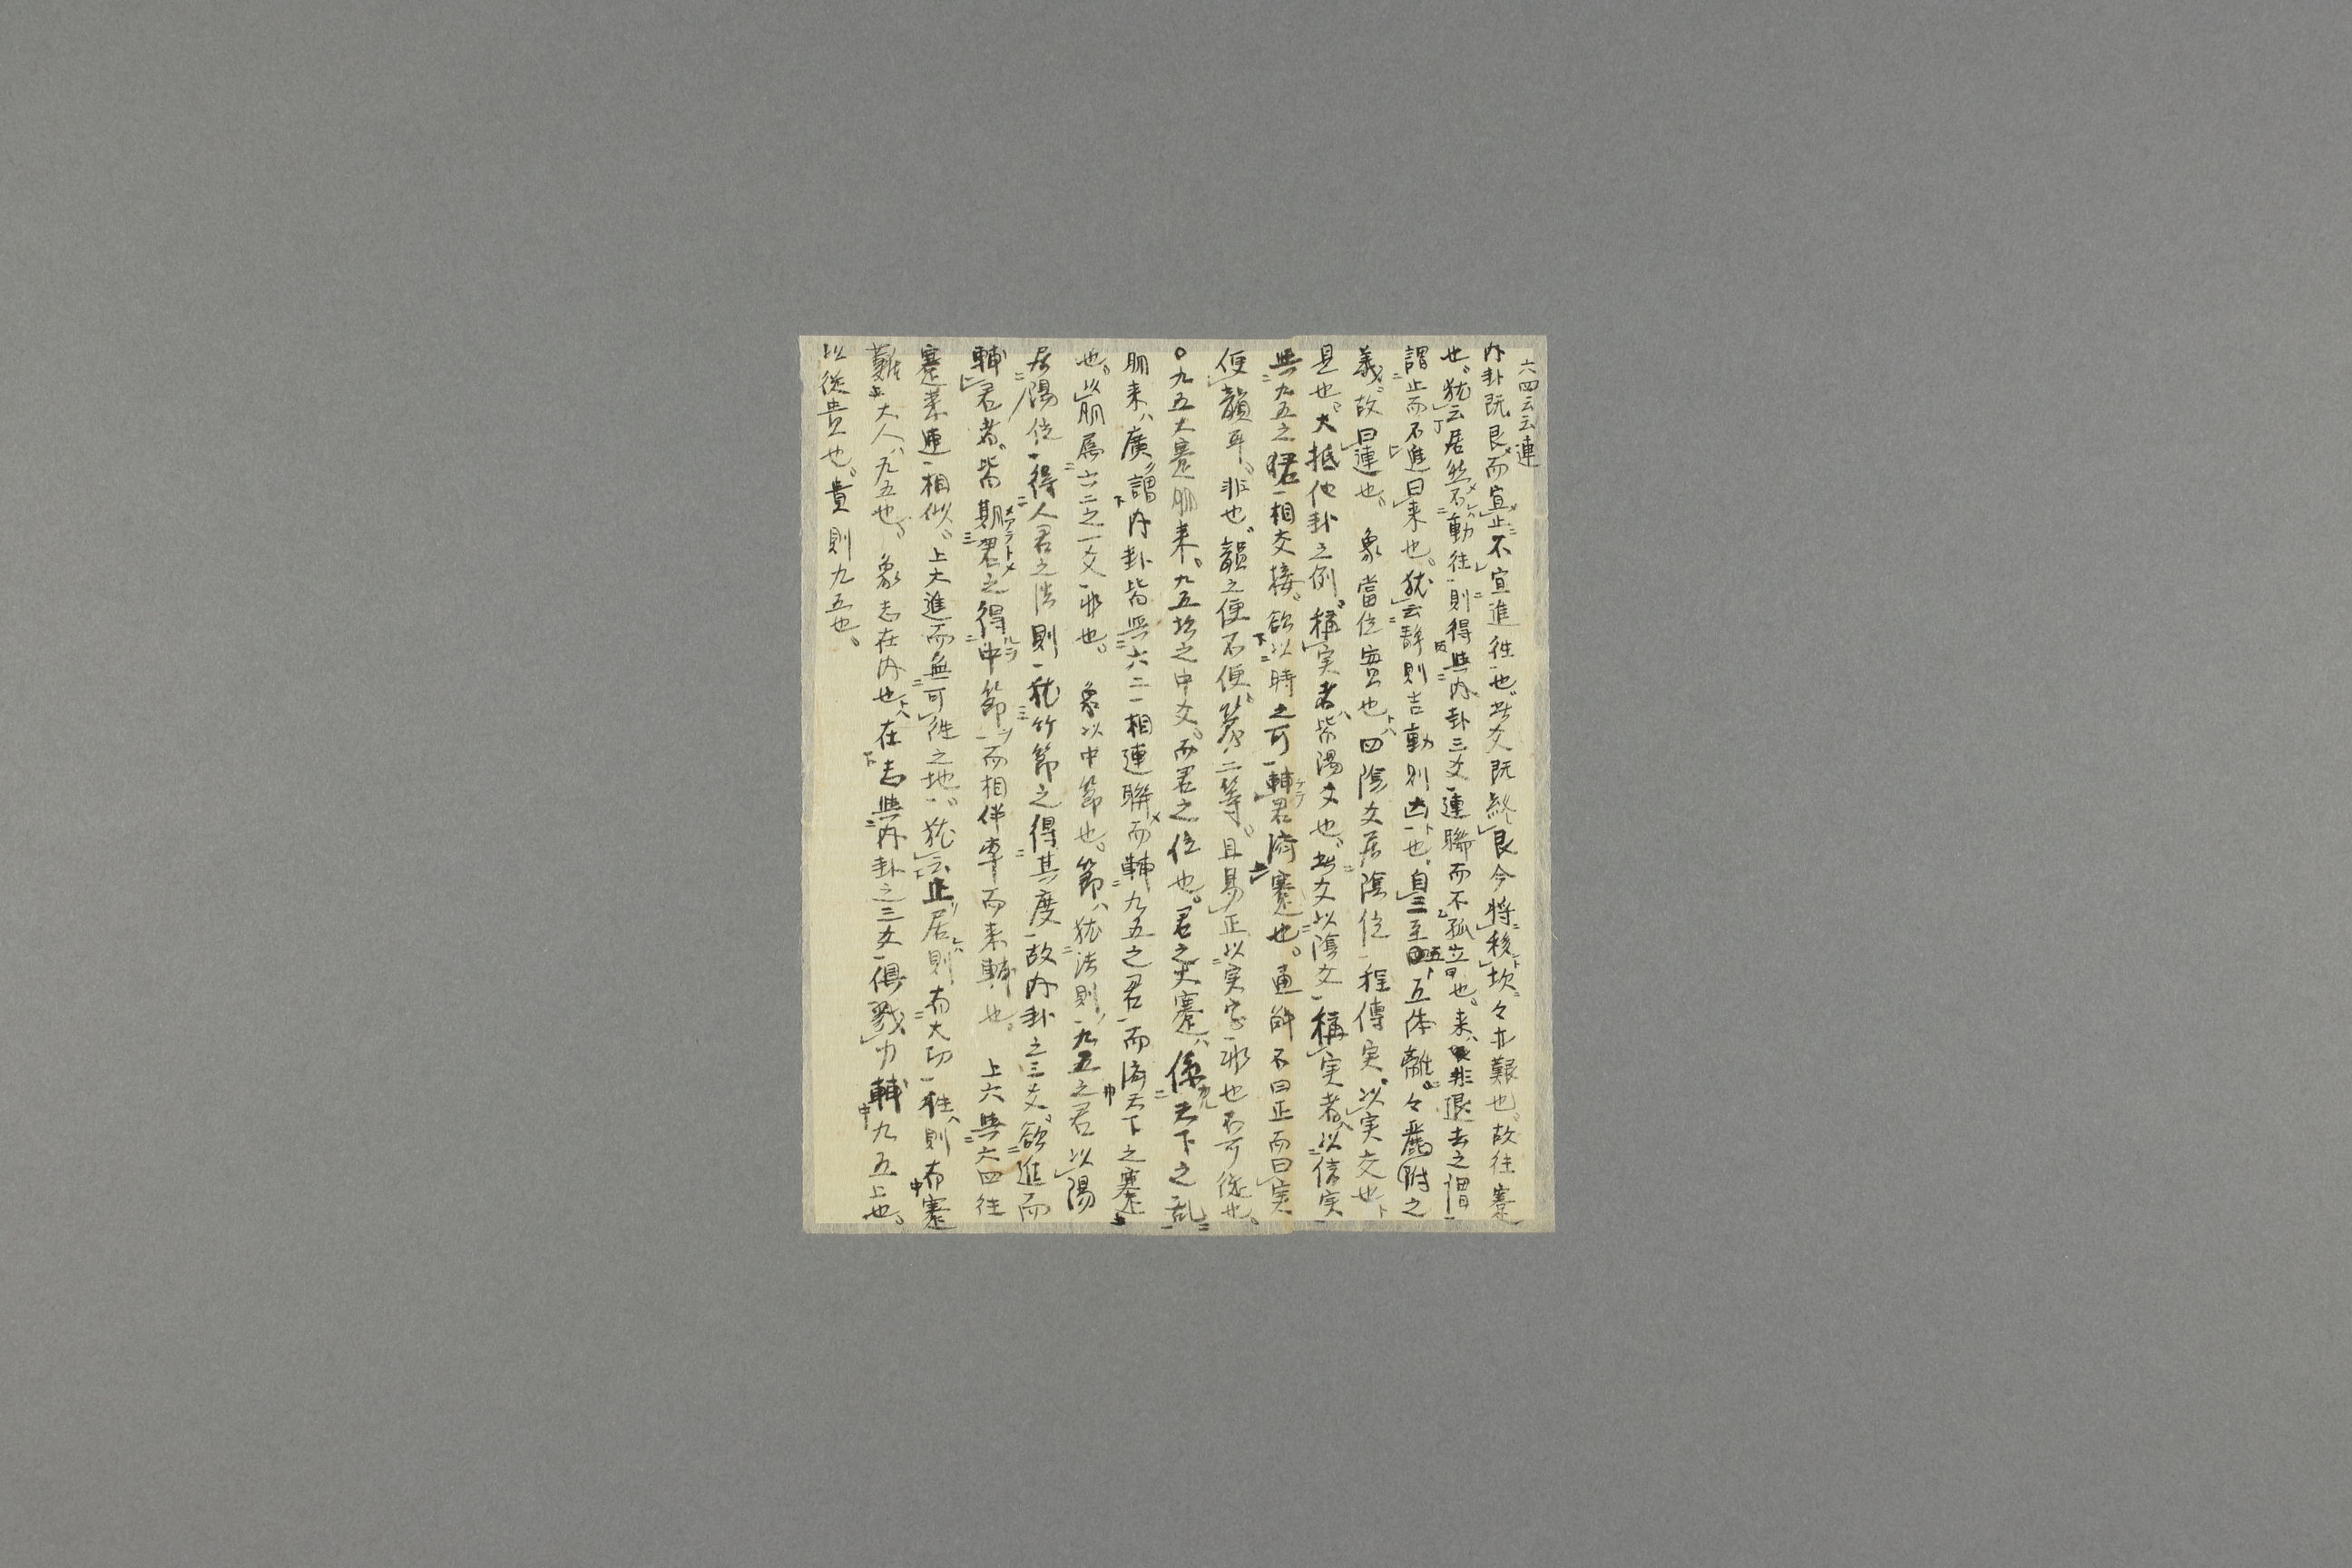 六四云云連
内卦既艮而宜止不宜進往也。此爻既終艮今将移坎々亦艱也。故往蹇
也。猶云居然不動往則得與内卦三爻連聯而不孤立也。来ハ非退去之謂
謂止而不進曰来也。猶云静則吉動則凶也。自三至五互体離。々麗附之
義。故曰連也。 象當位實也トハ四陰爻居陰位程傳実。以実交也ト
是也。大抵他卦之例。稱実者ハ皆陽爻也。此爻以陰爻稱実者ハ以信実
與九五之君相交接。欲以時之可輔君濟蹇也。通解不曰正而曰実
便韻耳。非也。韻之便不便第二等。且易正以実字非也不可從也。
○九五大蹇朋来。九五坎之中爻。而君之位也。君之大蹇ハ係天下之乱
朋来ハ廣謂内卦皆與六二相連聯而輔九五之君而濟天下之蹇
也。以朋為六二之一爻非也。 象以中節也。節ハ猶法則九五之君以陽
居陽位得人君之法則猶竹節之得其度故内卦之三爻。欲進而
輔君者。皆期君之得中節而相伴率而来輔也。 上六與六四往
蹇来連相似。上大進而無可往之地。猶云止居則有大功往ハ則有蹇
難大人ハ九五也。 象志在内也トハ在志與内卦之三爻俱戮力輔九五上也。
以從貴也。貴則九五也。